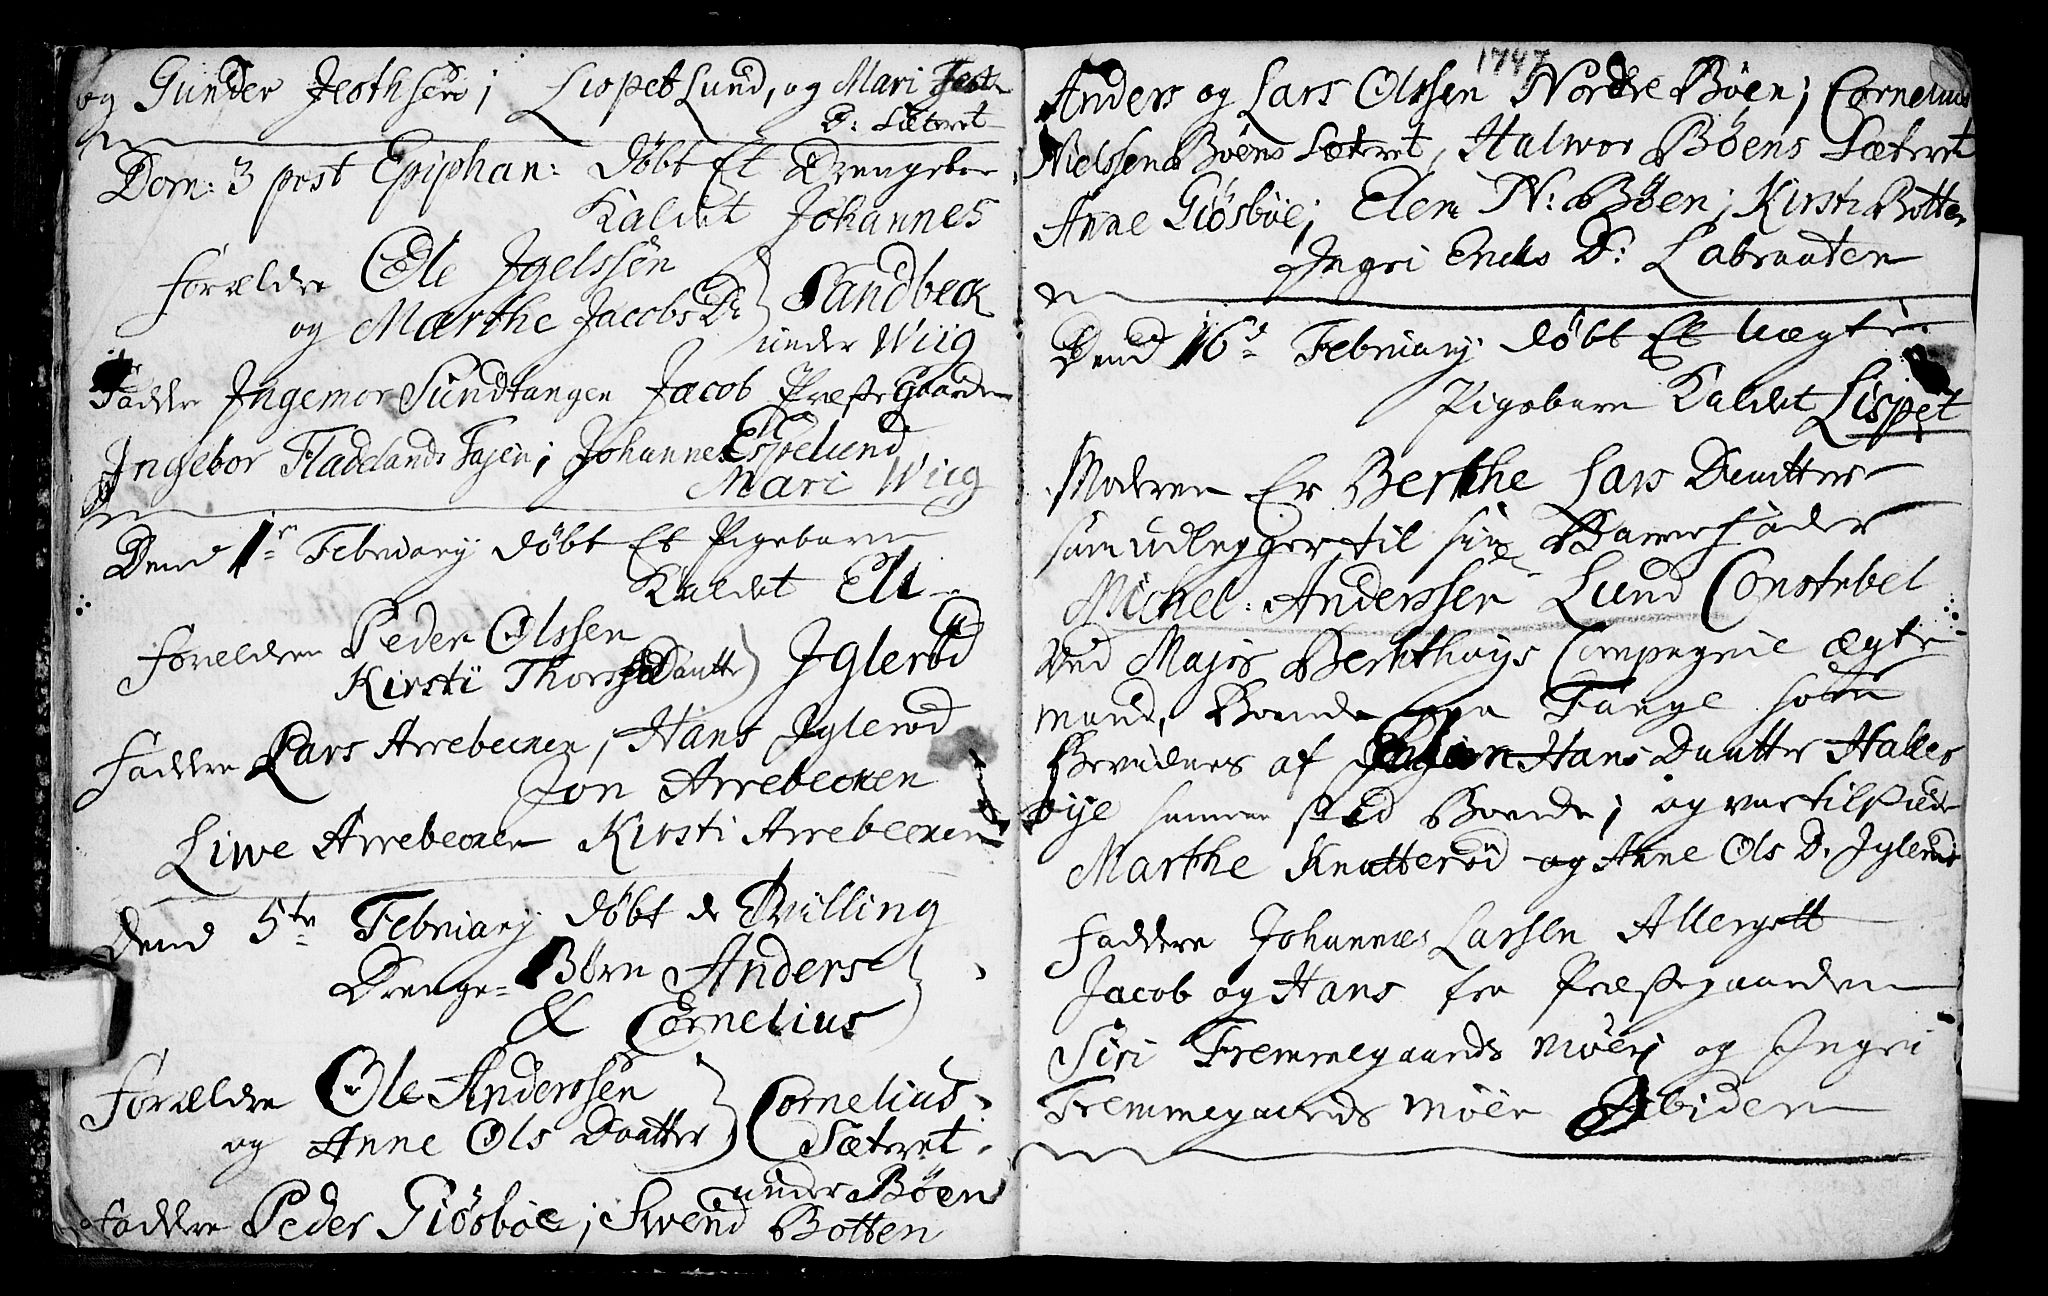 og Gunder Jeothsen; Lispet Lund, og Mari Jest-
D: Sæteret
Dom: 3 post Epiphan: døbt Et Drengebar
Kaldet Johannes
Forældre Ole Igelssen
og Marthe Jacobs Dr Sandbeck
under Wiig
Faddr Ingemor Sundtangen Jacob Præstegaarden
Ingebor Fladelands Ejen; Johannes Espelund
Mari Wiig
Dend 1te February døbt Et Pigebarn
Kaldet Eli
Foreldre Peder Olssen
Kirsti Thors Daatter Iglerød
Faddre Lars Arrebecken, Hans Iglerød
Jon Arrebecken
Liwe Arrebecken Kirsti Arrebecken
Dend 5te February døbt de Tvilling
Drenge-Børn Anders
& Cornelius
Forældre Ole Anderssen
og Anne Ols Daatter Cornelius-
Sæteret
under Bøen
Faddre Peder Giøsbøe; Swend Botten
1747
Anders og Lars Olssen Nordre Bøen; Cornelius
Nielssen Bøens Sæteret, Halwor Bøens Sæteret
Anne Giøsbøe; Elen N: Bøen; Kirsti Botten
Ingri Erichs D: Labraaten
Dend 16de February døbt Et Uægte
Pigebarn Kaldet Lispet
Moderen Er Berthe Lars Daatter
som udlegger til sin Barnefader
Michel Anderssen Lund Constabel
ved Majos Berthoys Compagnie ægte
mand, Boende paa Tange som
Bevidnes af Hans Daatter Halles
bye samme sted Boende; og var tilstæde
Marthe Knatterød og Anne Ols D. Iglerød
Faddere Johannes Larsen Allergott
Jacob og Hans fra Præstegaarden
Siri Fremmegaards Moen og Ingri
Fremmegaards Moen Ibidem